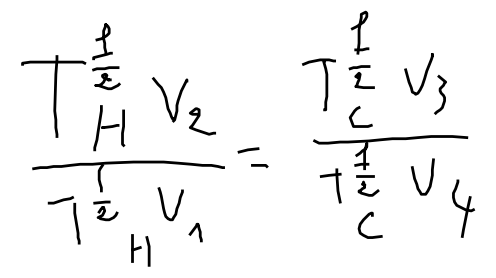 \frac{T_H^{\frac{f}{2}} V_2}{T_H^{\frac{f}{2}} V_1} = \frac{T_C^{\frac{f}{2}} V_3}{T_C^{\frac{f}{2}} V_4}